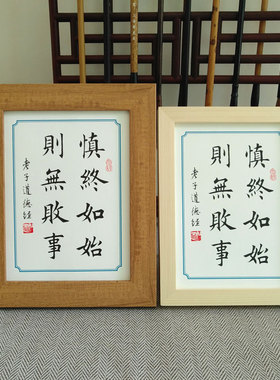 慎終如始
則無敗事
老子道德經
慎終如始
則無敗事
老子道德經